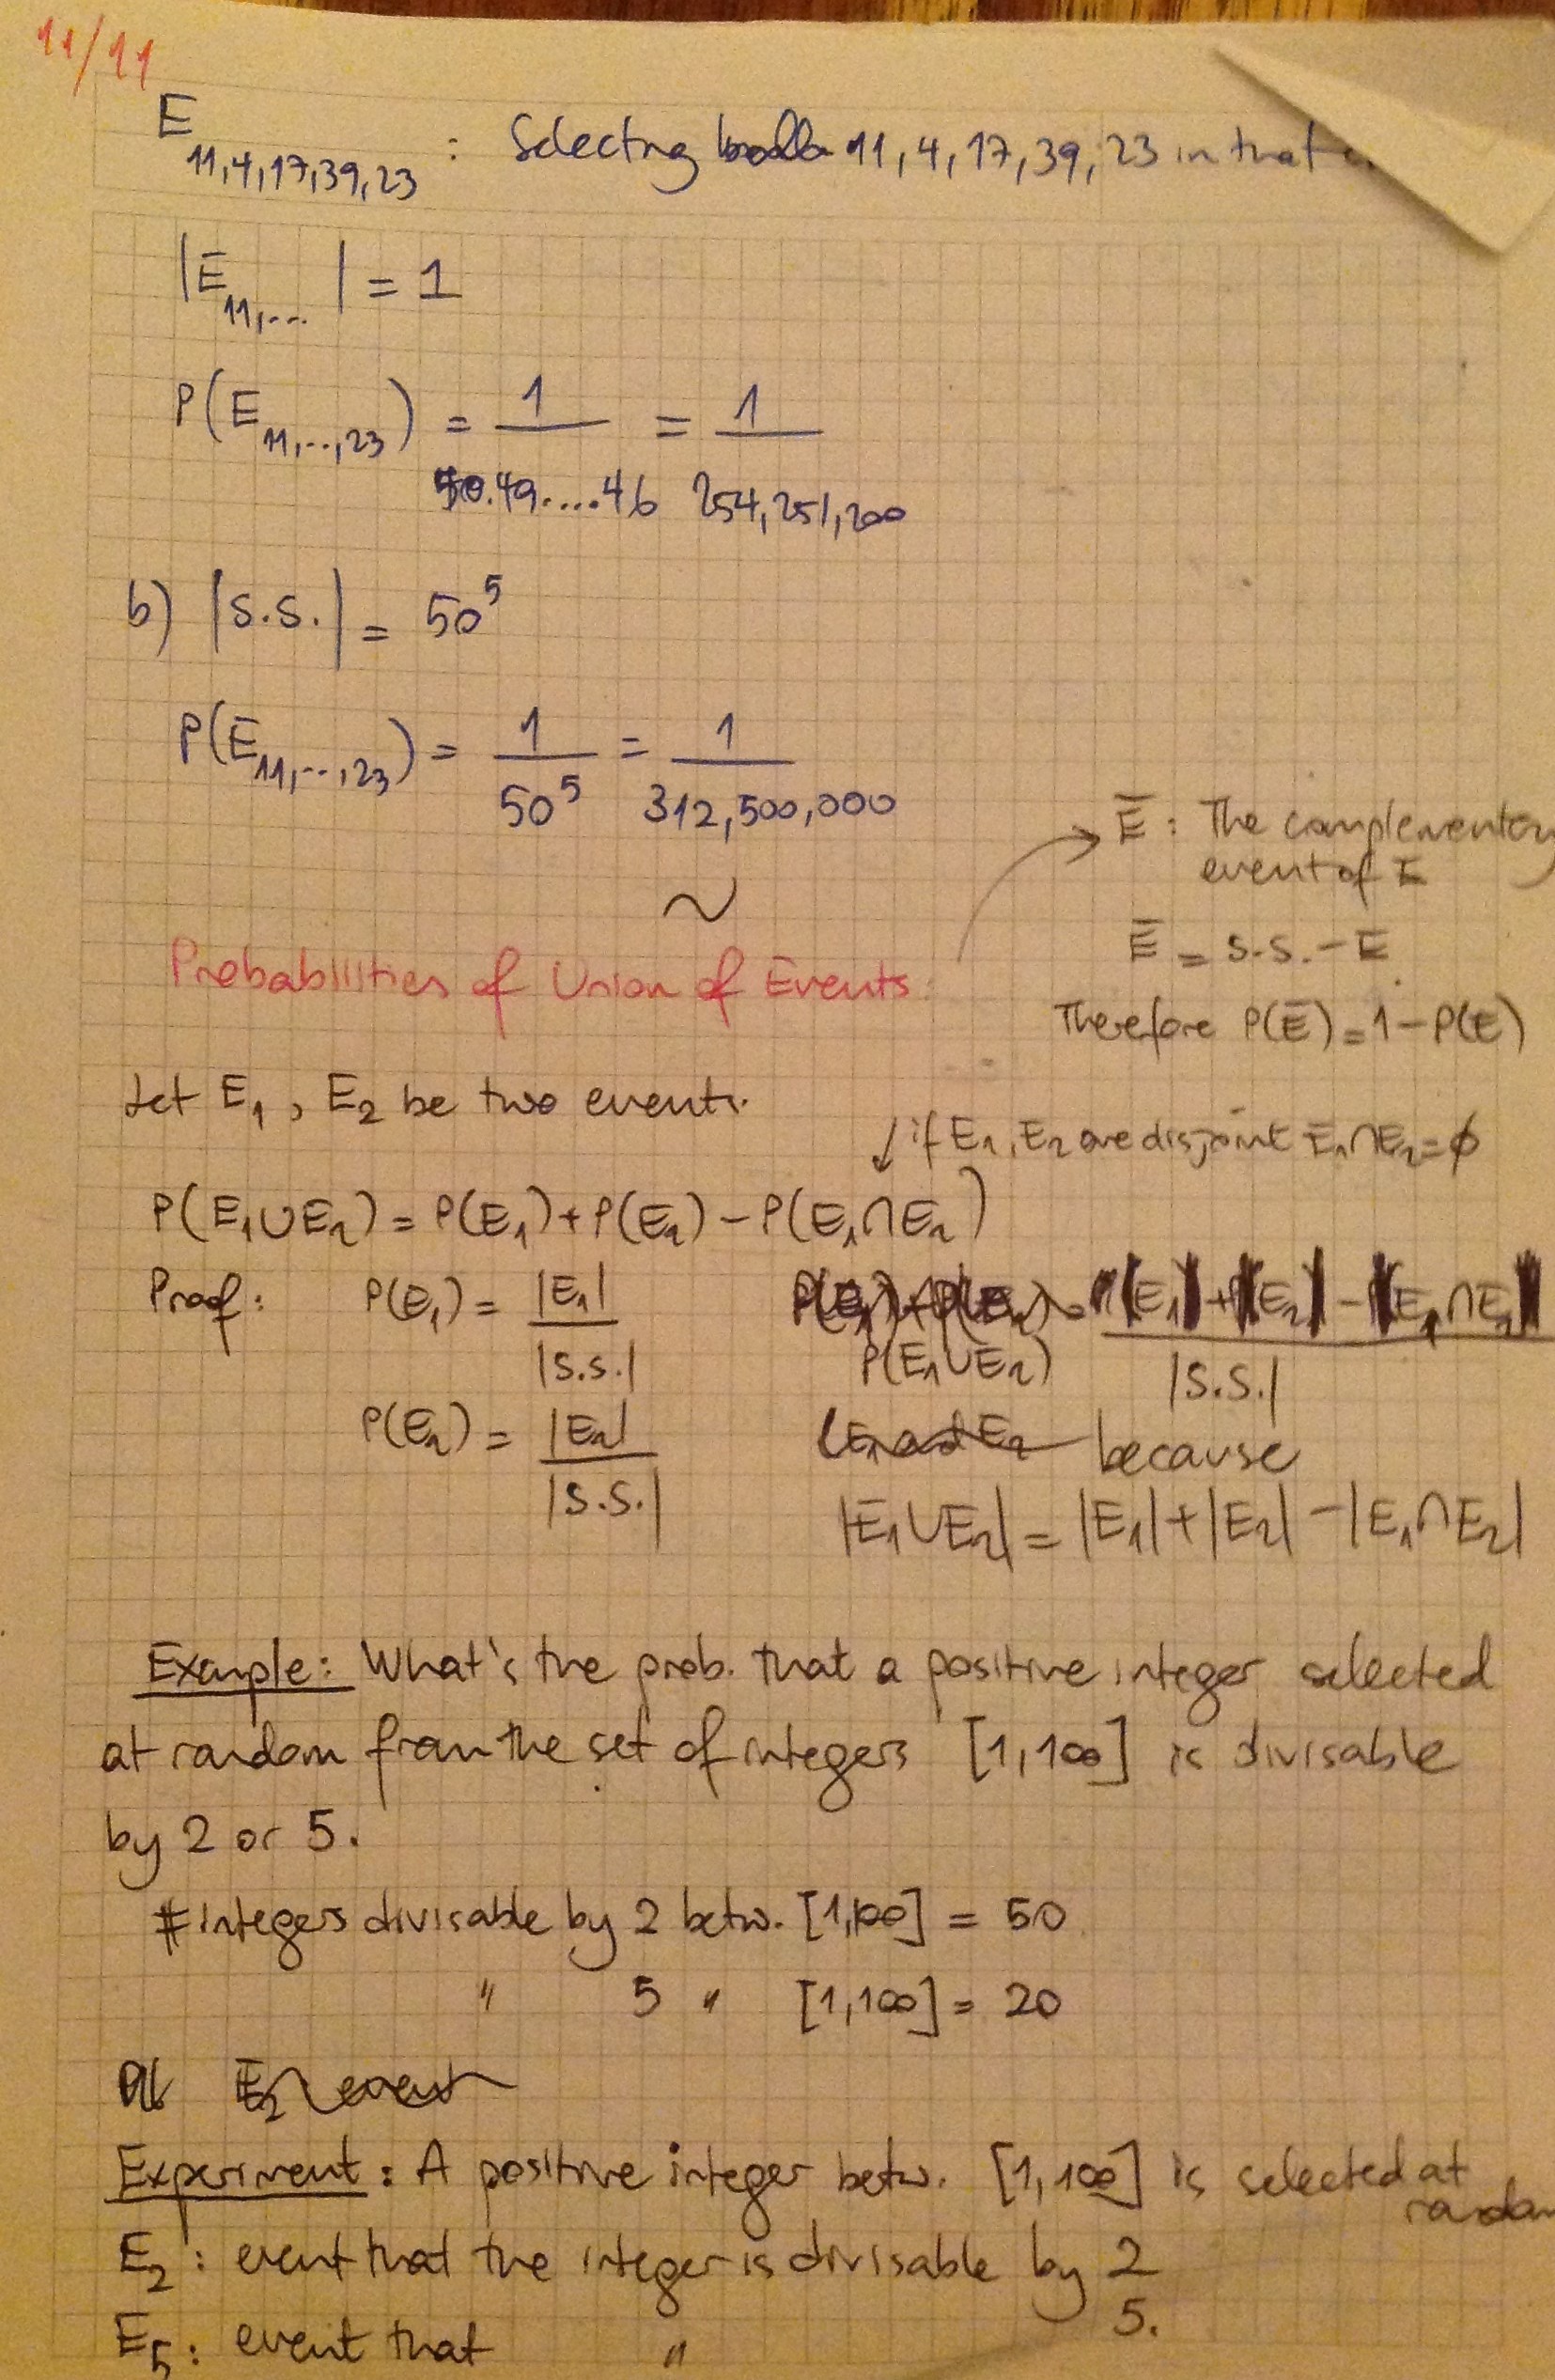 11/11
E 11,4,17,39,23 : Selecting balls 11, 4, 17, 39, 23 in that
|E 11,... | = 1
P(E 11,...,23) = 1/50.49....46 = 1/254,251,200
b) |S.S.| = 50⁵
P(E 11,...,23) = 1/50⁵ = 1/312,500,000
Ē : The complementary
event of E
Ē = S.S. - E
Therefore P(Ē) = 1 - P(E)
~
Probabilities of Union of Events:
Let E₁, E₂ be two events.
↓ if E₁, E₂ are disjoint E₁∩E₂ = ∅
P(E₁∪E₂) = P(E₁) + P(E₂) - P(E₁∩E₂)
Proof: P(E₁) = |E₁|/|S.S.|
P(E₂) = |E₂|/|S.S.|
P(E₁∪E₂) = |E₁| + |E₂| - |E₁∩E₂|/|S.S.|
because
|E₁∪E₂| = |E₁| + |E₂| - |E₁∩E₂|
Example: What's the prob. that a positive integer selected
at random from the set of integers [1,100] is divisable
by 2 or 5.
# integers divisable by 2 betw. [1,100] = 50
" 5 " [1,100] = 20
E₂ event
Experiment: A positive integer betw. [1,100] is selected at
random
E₂ : event that the integer is divisable by 2
E₅ : event that " 5.